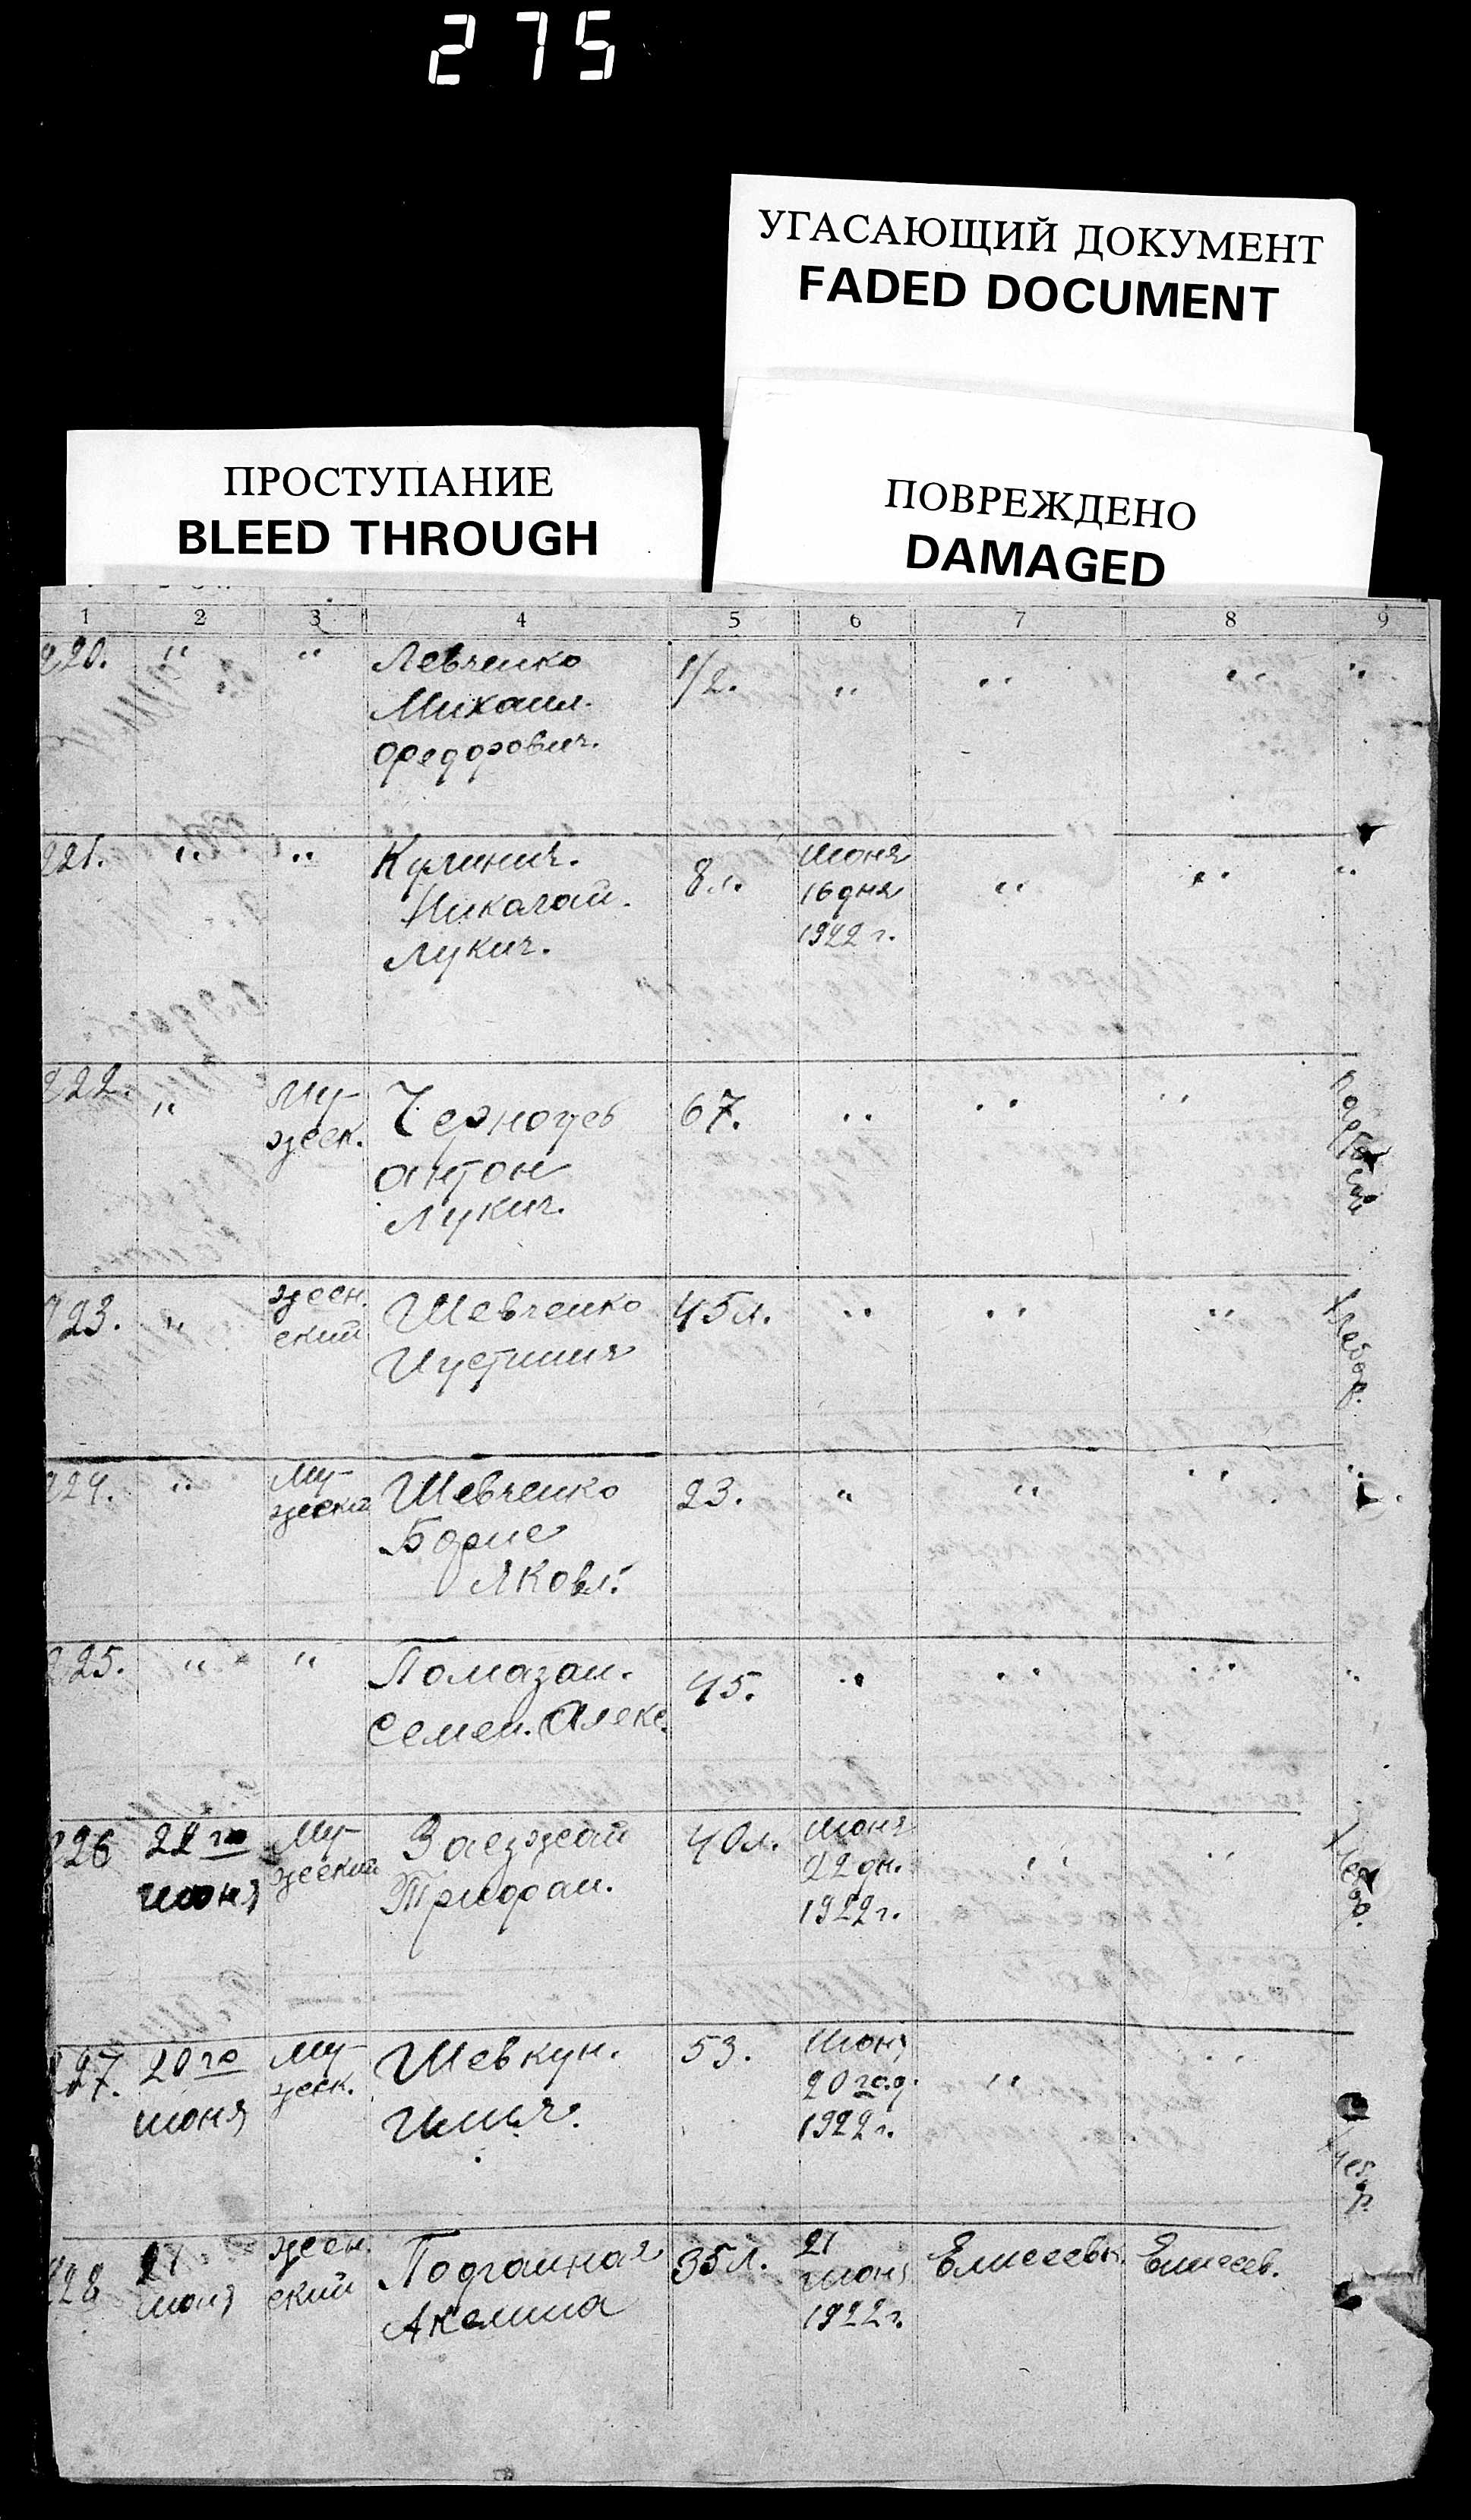 275
УГАСАЮЩИЙ ДОКУМЕНТ
FADED DOCUMENT
ПРОСТУПАНИЕ
BLEED THROUGH
ПОВРЕЖДЕНО
DAMAGED
1 2 3 4 5 6 7 8 9
220. " " Левченко 1/2. " " " "
Михаил.
Федорович.
221. " " Кулинич. 8 л. Июня " " "
Николай. 16 дня
Лукич. 1922 г.
222. " Му- Черноус 67. " " "
жеск.
Антон
Лукич.
223. " женский Шевченко 45 л. " " "
Иустиния
224. " Му- Шевченко 23. " " " "
жеский
Борис
Яковл.
225. " " Помазан. 45. " " " "
Семен. Алекс.
226 22 го Му- Заезжай 40 л. Июня " "
июня жеский Трифон. 22 дн.
1922 г.
227. 20 го Му- Шевкун. 53. Июня " "
июня жеск. Илия. 20 го д.
1922 г.
228 21 жен. Подгайная 35 л. 21 Елисеевк. Елисеев.
июня ский Акелина июня
1922 г.